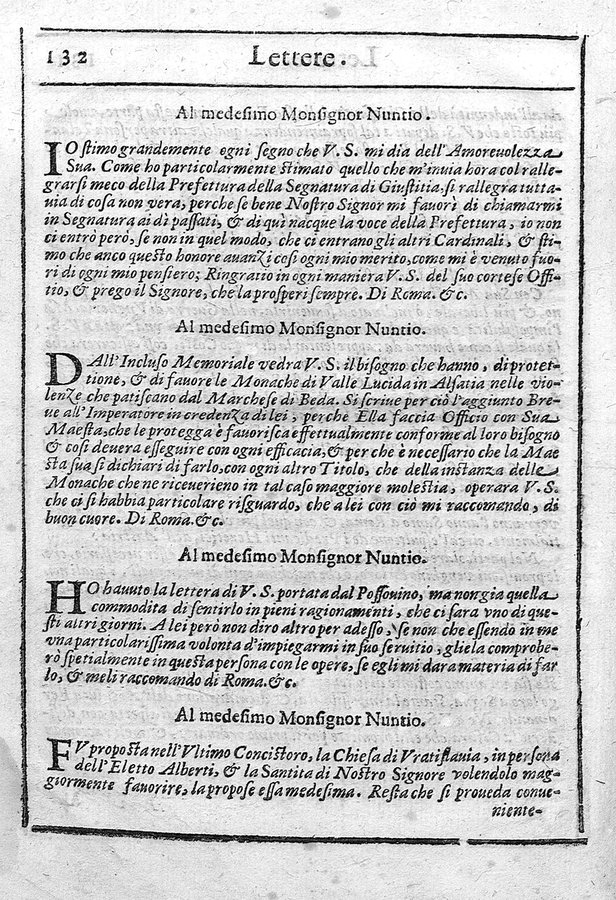 132 Lettere.
Al medesimo Monsignor Nuntio.
IO stimo grandemente ogni segno che V. S. mi dia dell'Amoreuolezza
Sua. Come ho particolarmente stimato quello che m'inuia hora col ralle-
grarsi meco della Prefettura della Segnatura di Giustitia. si rallegra tutta-
uia di cosa non vera, perche se bene Nostro Signor mi fauorì di chiamarmi
in Segnatura ai dì passati, & di quì nacque la voce della Prefettura, io non
ci entrò però, se non in quel modo, che ci entrano gli altri Cardinali, & sti-
mo che anco questo honore auanzi così ogni mio merito, come mi è venuto fuo-
ri di ogni mio pensiero; Ringratio in ogni maniera V. S. del suo cortese Offi-
tio, & prego il Signore, che la prosperi sempre. Di Roma. &c.
Al medesimo Monsignor Nuntio.
DAll'Incluso Memoriale vedra V. S. il bisogno che hanno, di protet-
tione, & di fauore le Monache di Valle Lucida in Alsatia nelle vio-
lenze che patiscano dal Marchese di Beda. Si scriue per ciò l'aggiunto Bre-
ue all'Imperatore in credenza di lei, perche Ella faccia Officio con Sua
Maestà, che le protegga è fauorisca effettualmente conforme al loro bisogno
& così deuera esseguire con ogni efficacia, & per che è necessario che la Mae
stà sua si dichiari di farlo, con ogni altro Titolo, che della instanza delle
Monache che ne riceuerieno in tal caso maggiore molestia, operara V. S.
che ci si habbia particolare risguardo, che a lei con ciò mi raccomando, di
buon cuore. Di Roma. &c.
Al medesimo Monsignor Nuntio.
HO hauuto la lettera di V. S. portata dal Possouino, ma non gia quella
commodita di sentirlo in pieni ragionamenti, che ci sara vno di que-
sti altri giorni. A lei però non diro altro per adesso, se non che essendo in me
vna particolarissima volonta d'impiegarmi in suo seruitio, gliela comprobe-
rò spetialmente in questa persona con le opere, se egli mi dara materia di far
lo, & me li raccomando di Roma. &c.
Al medesimo Monsignor Nuntio.
FV proposta nell'Vltimo Concistoro, la Chiesa di Vratislauia, in persona
dell'Eletto Alberti, & la Santita di Nostro Signore volendolo mag-
giormente fauorire, la propose essa medesima. Resta che si proueda conue-
niente-